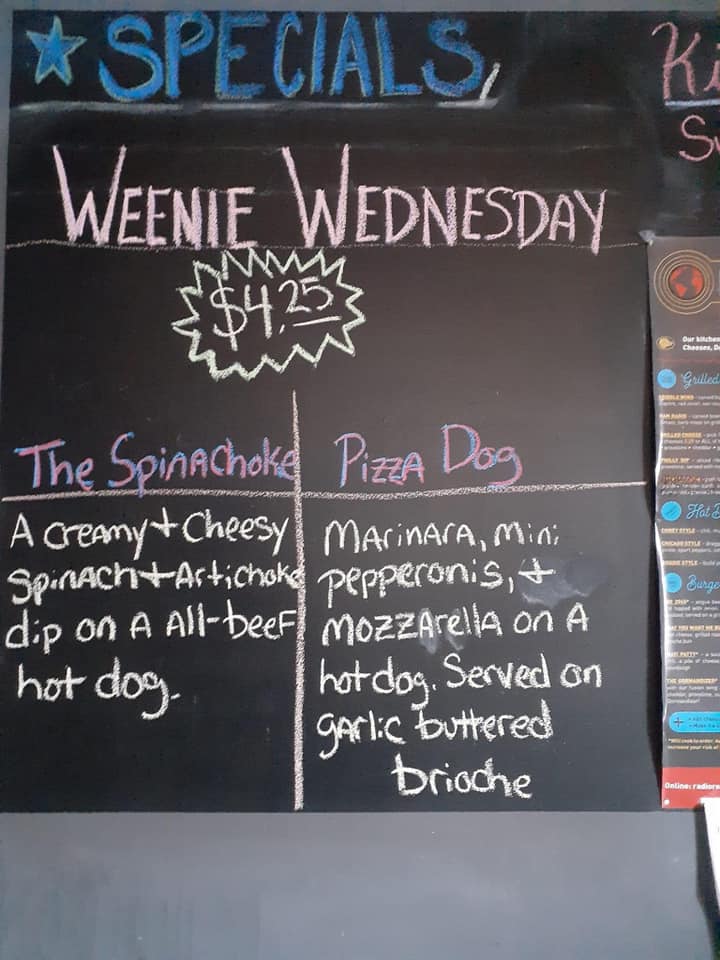 SPECIALS
WEENIE WEDNESDAY
$4.25
The Spinachoke
A creamy + Cheesy
Spinach + Artichoke
dip on A All-beef
hot dog.
Pizza Dog
Marinara, mini
pepperonis, +
mozzarella on A
hotdog. Served on
garlic buttered
brioche
Ki
Su
Our kitchen
Cheeses, D
Grilled
Hot D
CONEY STYLE
CHICAGO STYLE
Burge
THE GORMANDIZER*
Online: radior